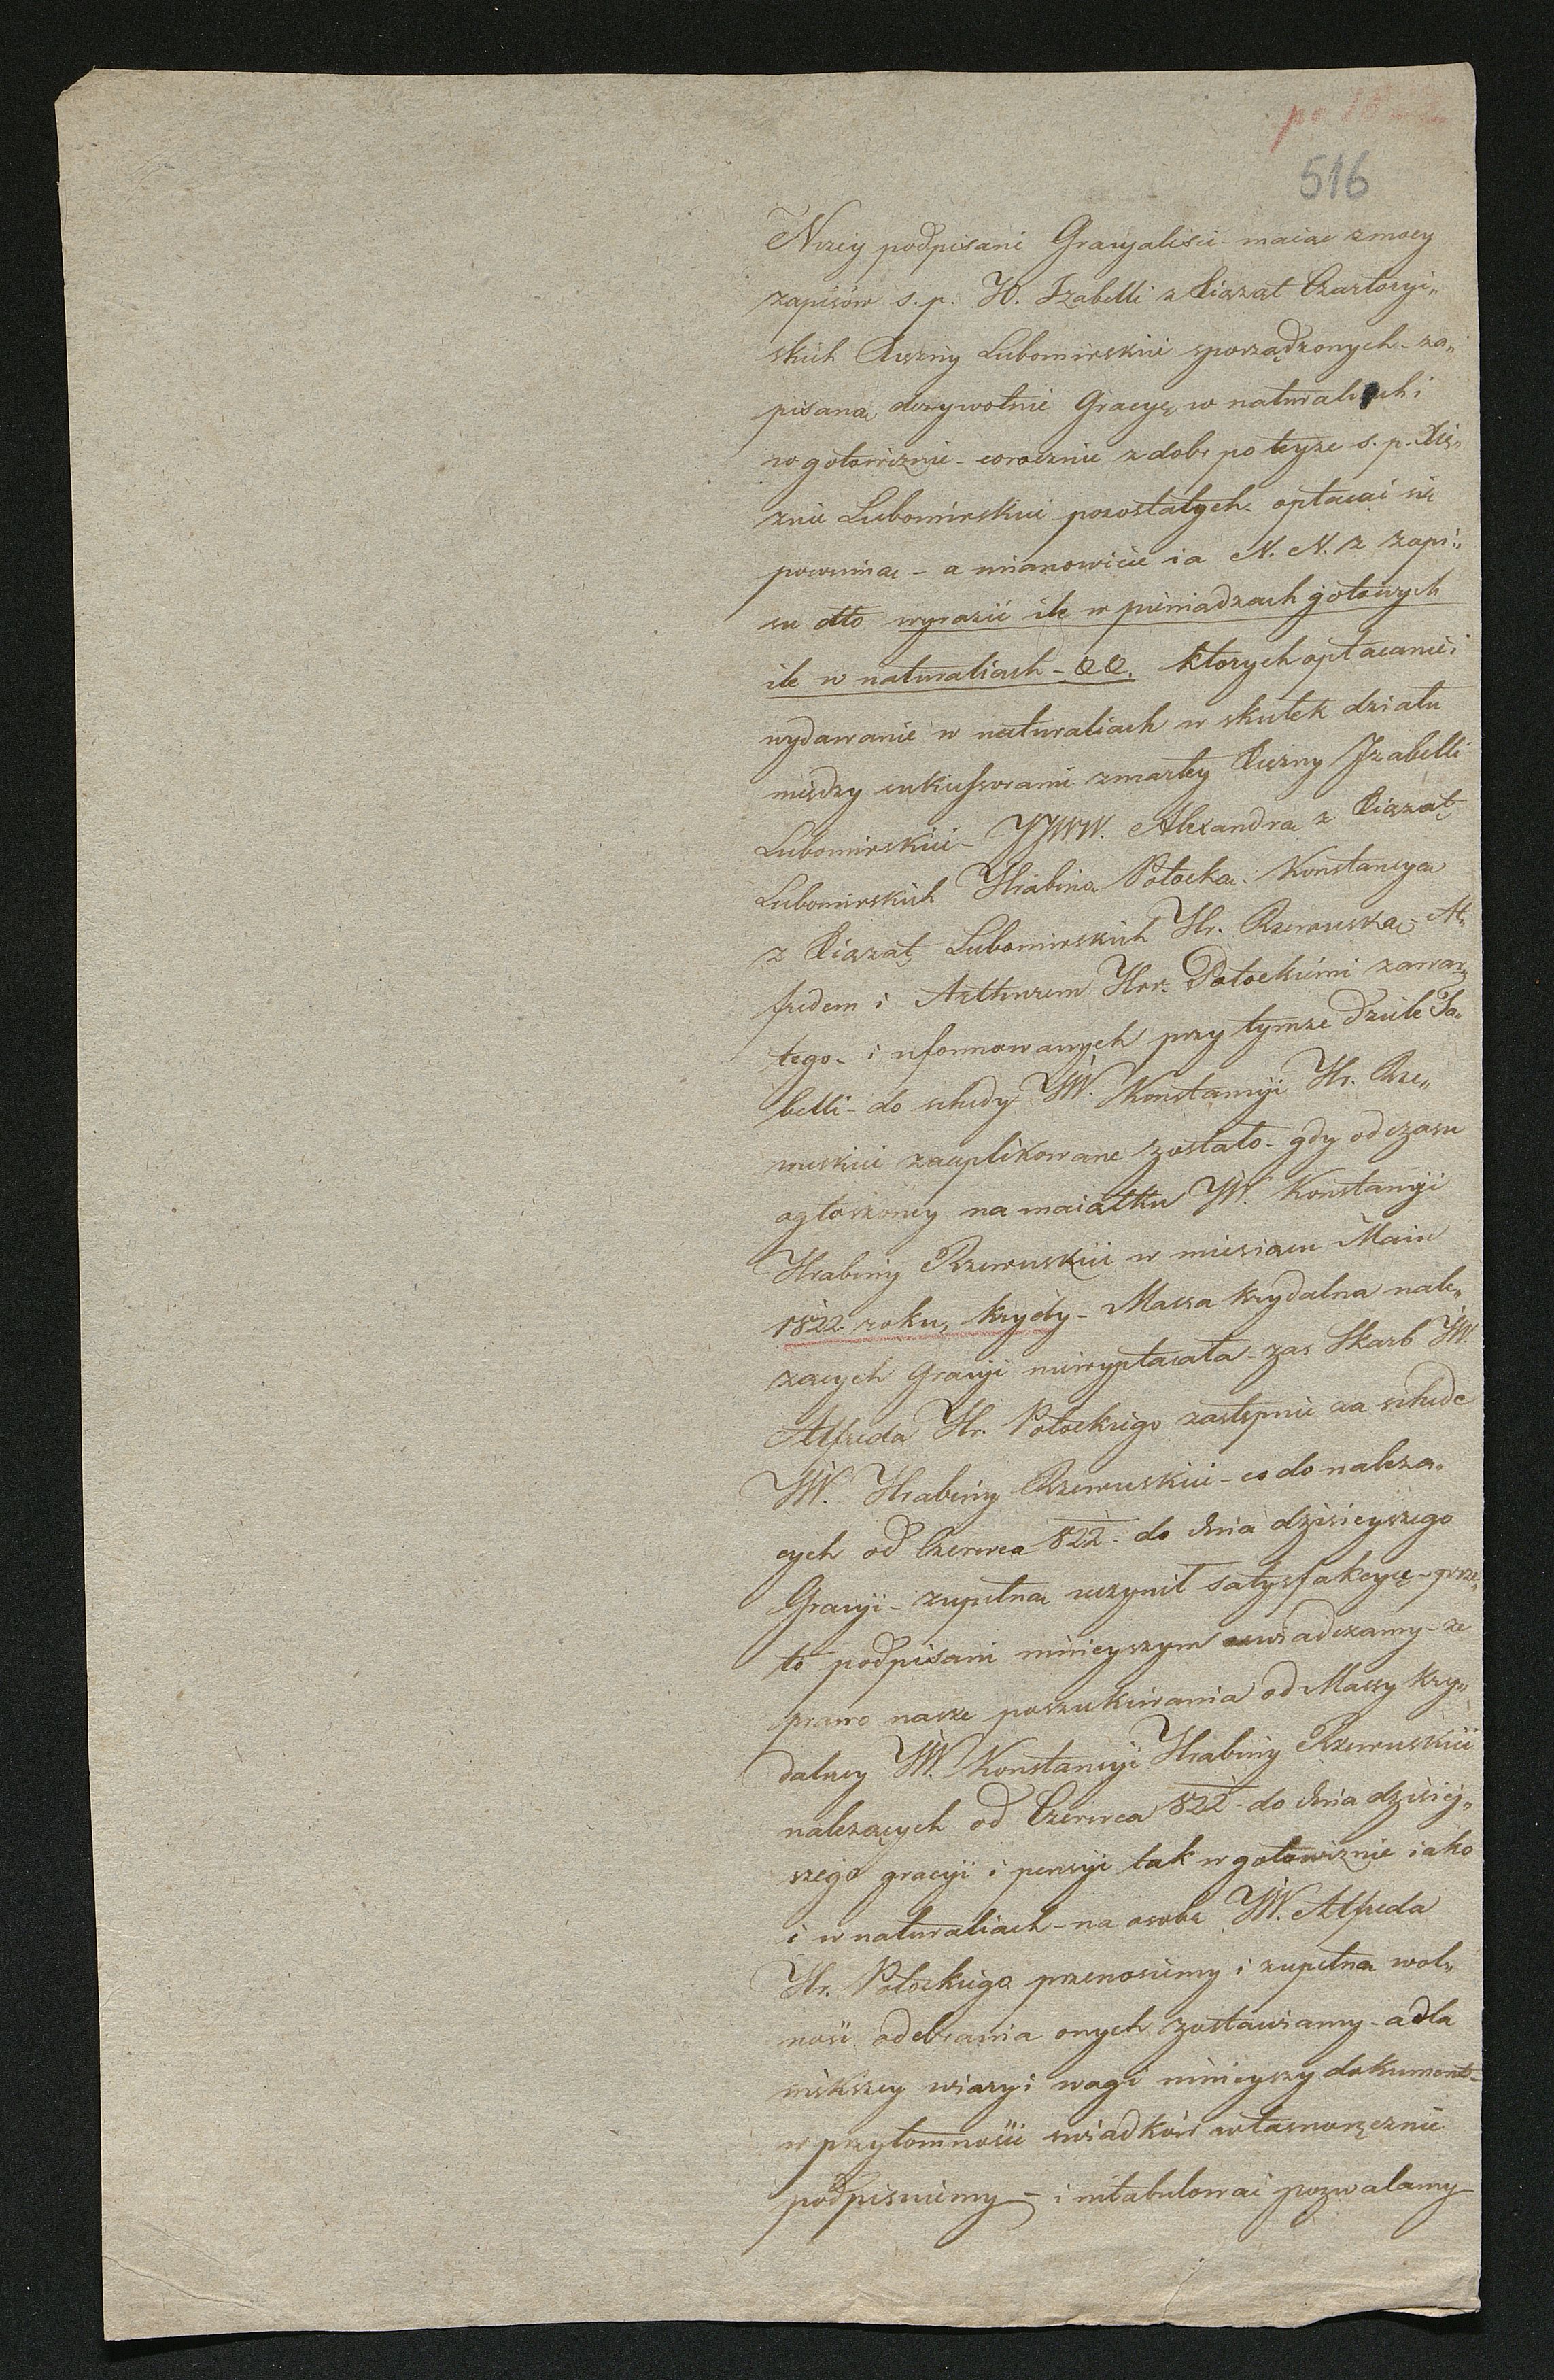 po 1822
516
Nizey podpisani Gracyalisci - maiąc z mocy
zapisów s. p. W. Izabelli z Xiąząt Czartoryi„
skich Xięzny Lubomirskiei sporządzonych - za„
pisaną dozywotnie Gracyę w naturaliach i
w gotowiznie - corocznie z dobr po teyze s. p. Xię„
znie Lubomirskiei pozostałych opłacać się
powinną - a mianowicie ia N. N. z zapi„
su dto wyrazić ile w pieniądzach gotowych
ile w naturaliach - &&. ktorych opłacanie i
wydawanie w naturaliach w skutek działu
między sukcessorami zmarłey Xiężny Izabelli
Lubomirskiei - JJWW. Alexandrą z Xiąząt
Lubomirskich Hrabiną Potocką. Konstancyą
z Xiąząt Lubomirskich Hr. Rzewuską, Al„
fredem i Arthurem Hrr. Potockiemi zawar„
tego - i uformowanych przy tymze dziele Ta„
belli - do schedy JW. Konstancyi Hr. Rze„
wuskiei zaaplikowane zostało - gdy od czasu
ogłoszoney na maiątku JW. Konstancyi
Hrabiny Rzewuskiei w miesiącu Maiu
1822 roku, krydy - Massa krydalna nale„
zących Gracyi niewypłacała - zas Skarb JW.
Alfreda Hr. Potockiego zastępnie za schedę
JW. Hrabiny Rzewuskiei - co do naleza„
cych od Czerwca 822 do dnia dzisieyszego
Gracyi - zupełną uczynił satysfakcyę - prze„
to podpisani ninieyszym oswiadczamy - ze
prawo nasze poszukiwania od Massy kry„
dalney JW. Konstancyi Hrabiny Rzewuskiei
nalezących od Czerwca 822 do dnia dzisiey„
szego gracyi i pensyi tak w gotowiznie iako
i w naturaliach - na osobę JW. Alfreda
Hr. Potockiego przenosiemy i zupełną wol„
ność odebrania onych zostawiamy - a dla
większey wiary i wagi ninieyszy dokument -
w przytomności swiadków własnoręcznie
podpisuiemy - i intabulować pozwalamy -